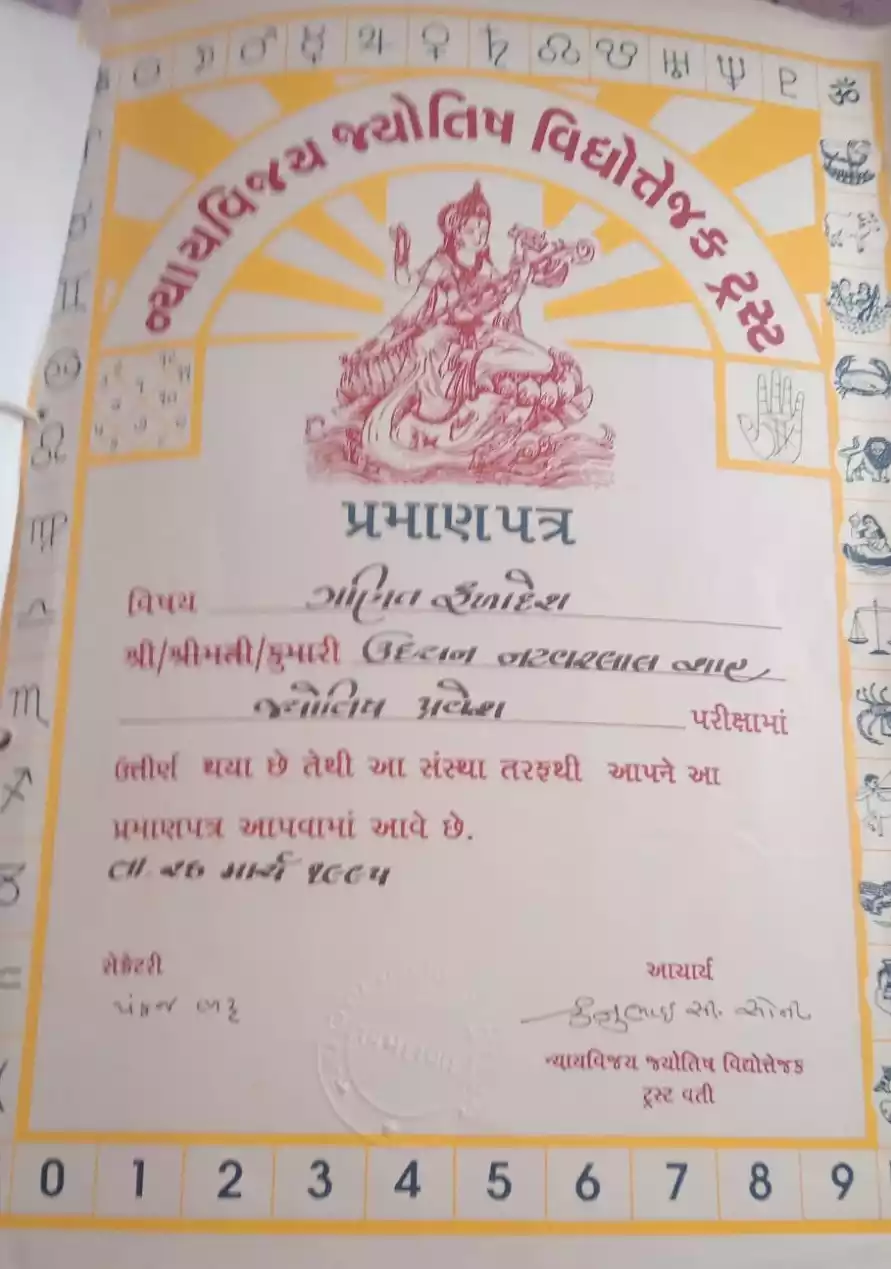 ન્યાયવિજય જ્યોતિષ વિદ્યોત્તેજક ટ્રસ્ટ
ૐ
પ્રમાણપત્ર
વિષય ગણિત ફળાદેશ
શ્રી/શ્રીમતી/કુમારી ઉદયન નટવરલાલ શાહ
જ્યોતિષ પ્રવેશ પરીક્ષામાં
ઉત્તીર્ણ થયા છે તેથી આ સંસ્થા તરફથી આપને આ
પ્રમાણપત્ર આપવામાં આવે છે.
તા. ૨૬ માર્ચ ૧૯૯૫
સેક્રેટરી
આચાર્ય
પંકજ ભટ્ટ
કનુભાઇ સી. સોની
ન્યાયવિજય જ્યોતિષ વિદ્યોત્તેજક
ટ્રસ્ટ વતી
0 1 2 3 4 5 6 7 8 9